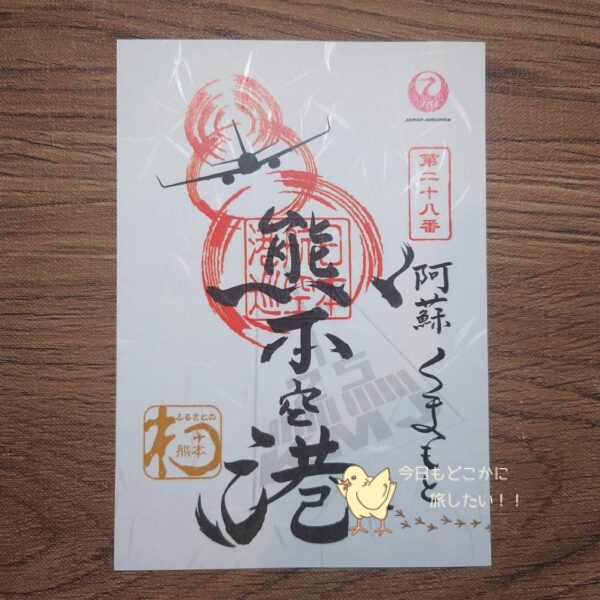 JAPAN AIRLINES
第二十八番
阿蘇くまもと
熊本空港
ふるさとの
熊本
今日もどこかに
旅したい！！